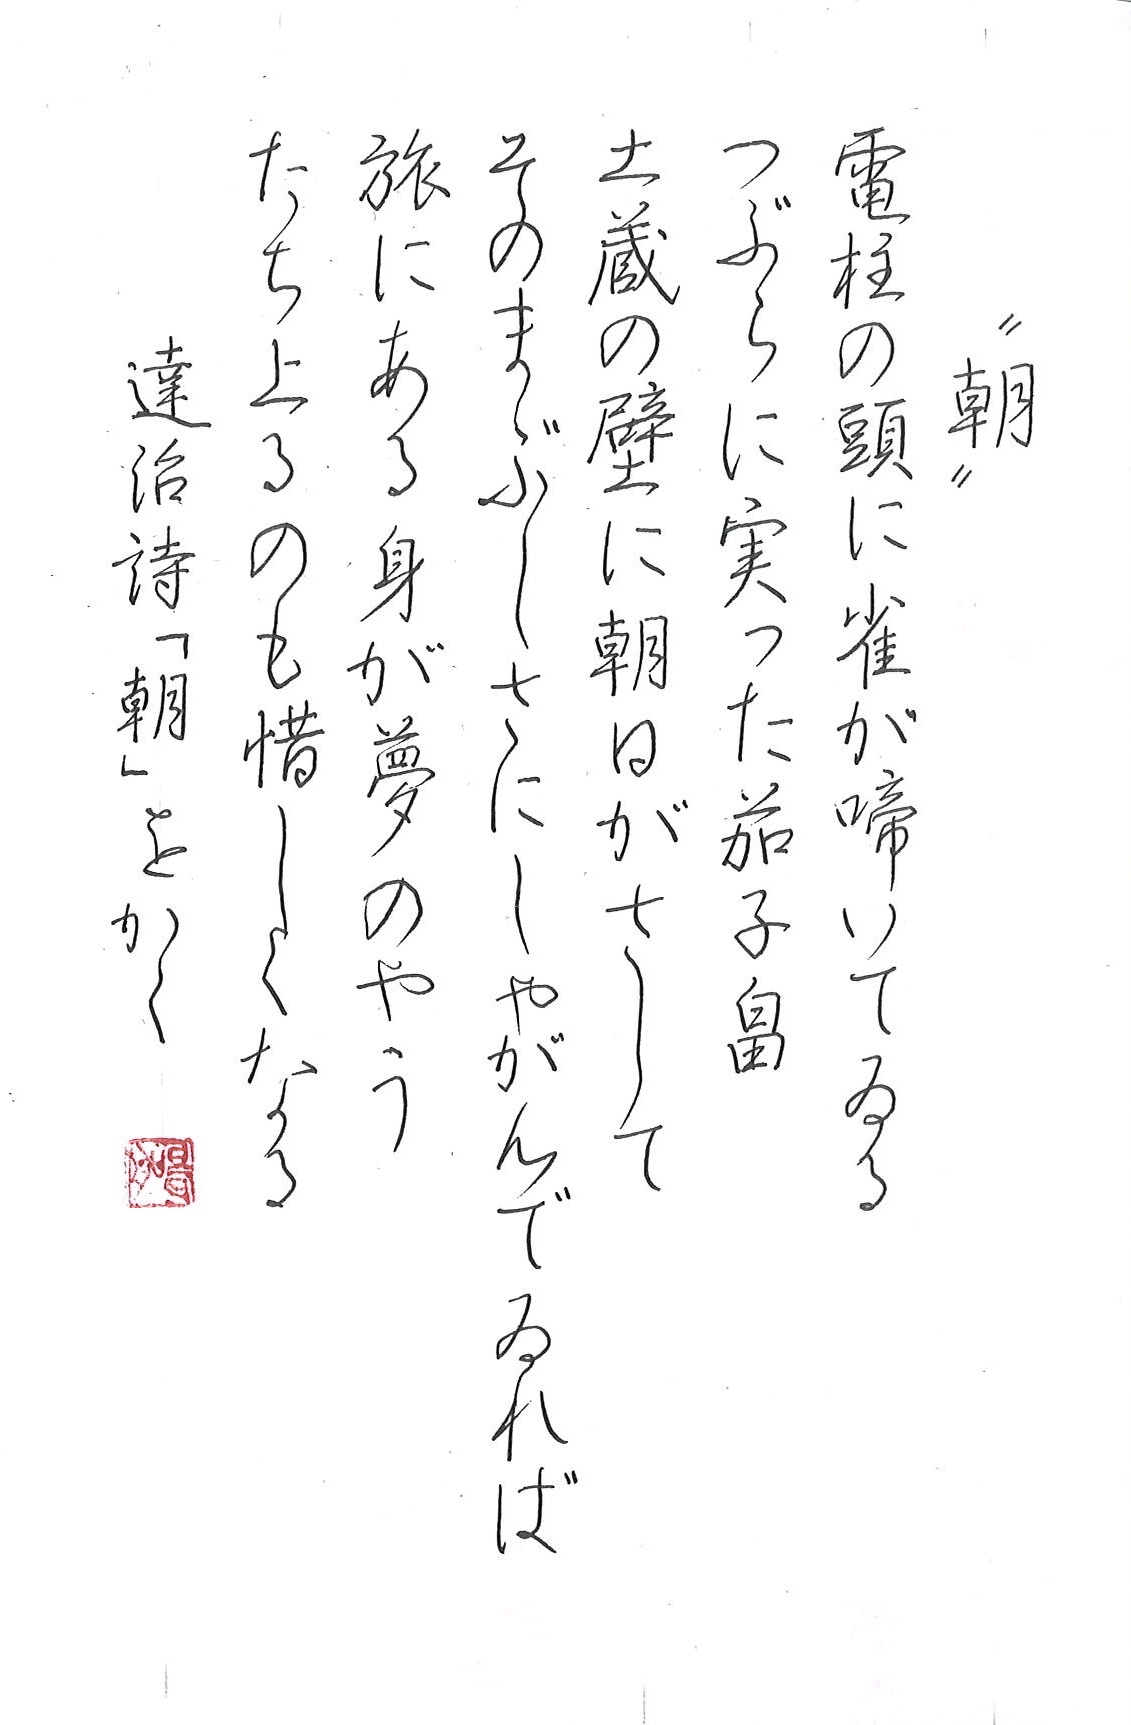 〝朝〟
電柱の頭に雀が啼いてゐる
つぶらに実った茄子畠
土蔵の壁に朝日がさして
そのまぶしさにしやがんでゐれば
旅にある身が夢のやう
たち上るのも惜しくなる
達治詩「朝」をかく